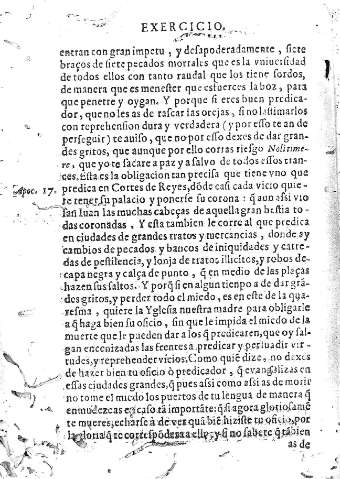 EXERCICIO.
entran con gran impetu, y desapoderadamente, siete
braços de siete pecados mortales que es la vniuersidad
de todos ellos con tanto raudal que los tiene sordos,
de manera que es menester que esfuerces la boz, para
que penetre y oygan. Y porque si eres buen predica-
dor, que no les as de rascar las orejas, si no lastimarlos
con reprehension dura y verdadera (y por esso te an de
perseguir) te auiso, que no por esso dexes de dar gran-
des gritos, que aunque por ello corras riesgo Noli time-
re, que yo te sacare a paz y a saluo de todos essos tran-
ces. Esta es la obligacion tan precisa que tiene vno que
Apoc. 17.
predica en Cortes de Reyes, dõde casi cada vicio quie-
re tener su palacio y ponerse su corona: q̃ aun assi vio
san Iuan las muchas cabeças de aquella gran bestia to-
das coronadas. Y esta tambien le corre al que predica
en ciudades de grandes tratos y mercancias, donde ay
cambios de pecados y bancos de iniquidades y catre-
das de pestilencia, y lonja de tratos illicitos, y robos de
capa negra y calça de punto, q̃ en medio de las plaças
hazen sus saltos. Y porq̃ si en algun tiempo a de dar grã-
des gritos, y perder todo el miedo, es en este de la qua-
resma, quiere la Yglesia nuestra madre para obligarle
a q̃ haga bien su oficio, sin que le impida el miedo de la
muerte que le pueden dar a los q̃ predicaren, que oy sal-
gan encenizadas las frentes a predicar y persuadir vir-
tudes, y reprehender vicios. Como quiẽ dize, no dexes
de hazer bien tu oficio ò predicador, q̃ euangelizas en
essas ciudades grandes, q̃ pues assi como assi as de morir
no tome el miedo los puertos de tu lengua de manera q̃
enmudezcas en caso tã importãte: q̃ si agora gloriosamẽ
te mueres, echarse à de ver quã biẽ hiziste tu oficio, por
la gloria q̃ te correspõdera a ello, y si no sabete q̃ tãbien
as de